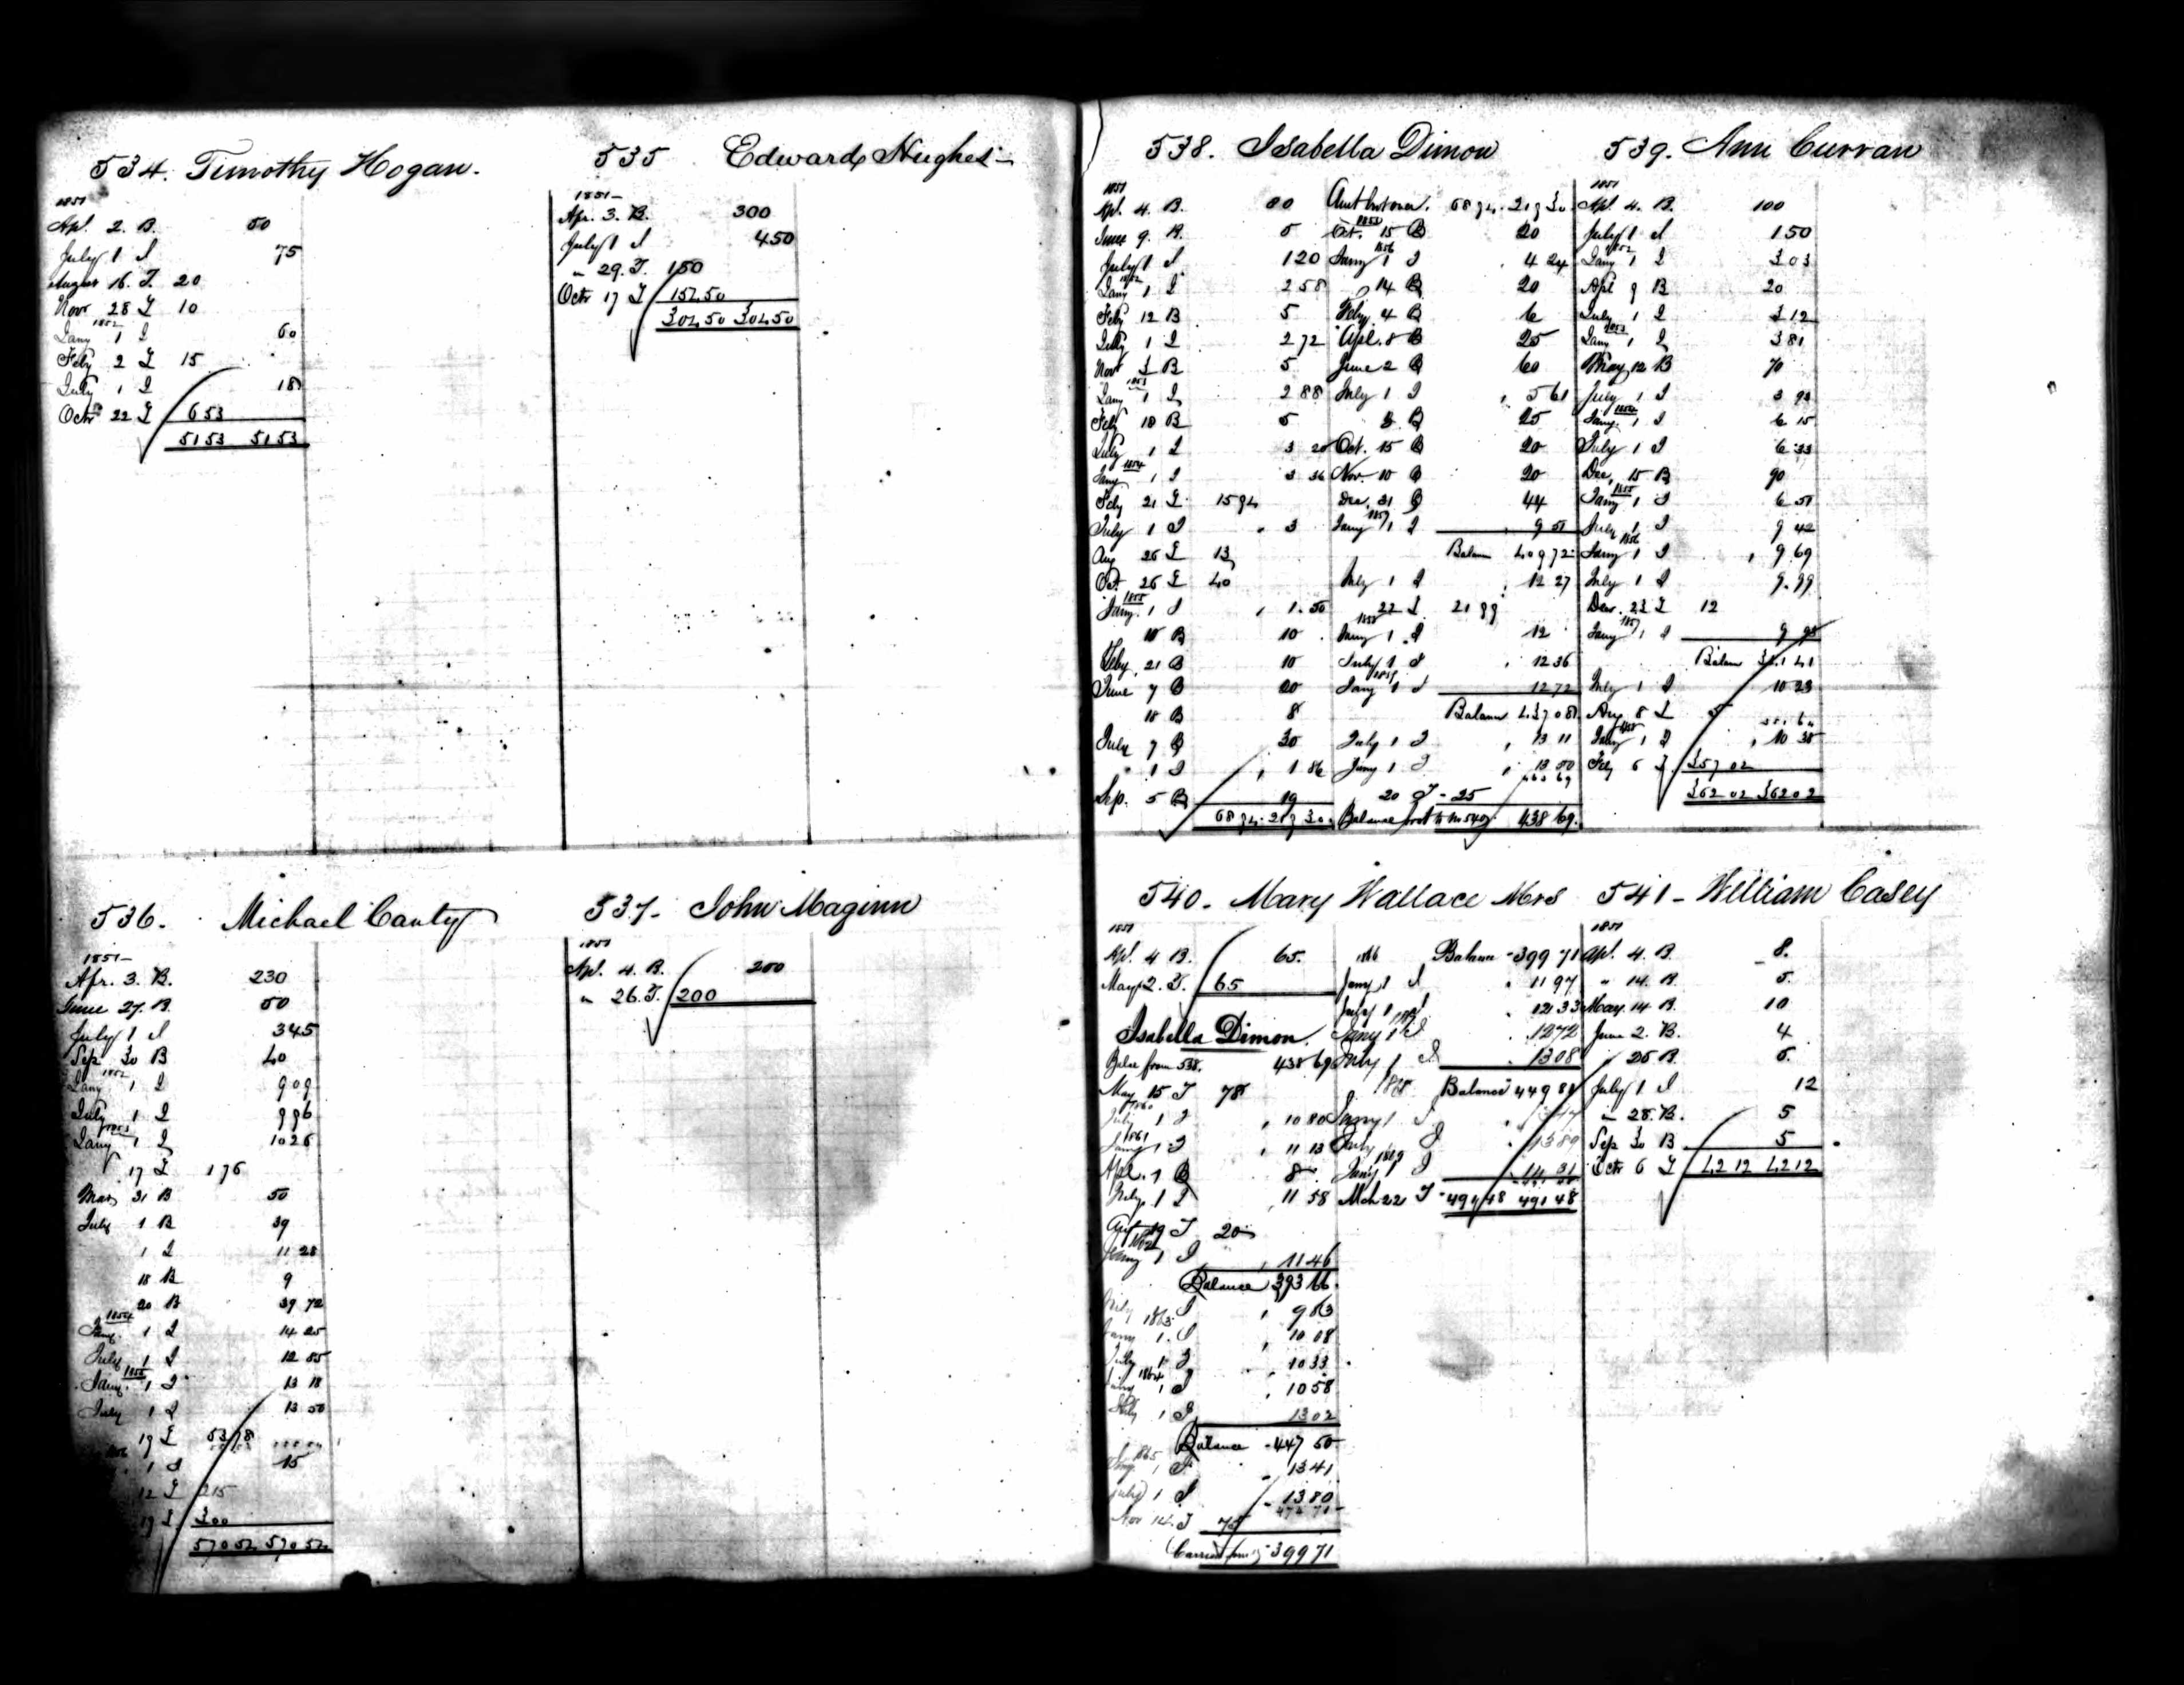 534. Timothy Hogan.
1851
Apl. 2. B. 50
July 1 I 75
August 16. T. 20
Novr 28 T 10
1852
Jany 1 I 60
Feby 2 T 15
July 1 I 18
Octr 22 T 653
5153 5153
535 Edward Hughes
1851-
Apr. 3. B. 300
July 1 I 450
" 29. T. 150
Octr 17 T 15450
30450 30450
536. Michael Canty
1851-
Apr. 3. B. 230
June 27. B. 50
July 1 I 345
Sep 30 B 40
1852
Jany 1 I 909
July 1 I 996
1853
Jany 1 I 1026
17 T 176
Mar 31 B 50
July 1 B 39
1 I 11 28
18 B 9
20 B 39 72
1854
Jany. 1 I 14 25
July 1 I 12 85
1855
Jany. 1 I 13 18
July 1 I 13 50
19 T 53 78
1 I 15
12 T 215
19 T. 300
57052 57052
537- John Maginn
1851
Apl. 4. B. 200
" 26. T. 200
538. Isabella Dimon
1851
Apl. 4. B. 80
June 9. B. 5
July 1 I 120
1852
Jany 1 I 258
Feby 12 B 5
July 1 I 272
Novr 3 B 5
1853
Jany 1 I 288
Feby 18 B 5
July 1 I 3 20
1854
Jany 1 I 3 36
Feby 21 T 1594
July 1 I " 3
Aug 26 T 13
Oct. 26 T 40
1855
Jany. 1 I " 1.50
18 B 10
Feby. 21 B 10
June 7 B 20
18 B 8
July 7 B 30
" 1 I " 1 86
Sep. 5 B 19
6894 29730
Amt brt over. 6894. 29730
1855
Oct. 15 B 20
1856
Jany 1 I " 4 24
14 B 20
Feby. 4 B 6
Apl. 8 B 25
June 2 B 60
July 1 I " 5 61
3 B 25
Oct. 15 B 20
Nov. 10 B 20
Dec. 31 B 44
1857
Jany 1 I " 9 51
Balance 40972
July 1 I " 12 27
22 T 2199
1858
Jany 1 I 12
July 1 I " 12 36
1859
Jany 1 I 12 72
Balance 43708
July 1 I " 13 11
Jany 1 I " 13 50
463 69
20 T - 25
Balance fwd to No 540 438 69.
539. Ann Curran
1851
Apl. 4. B. 100
July 1 I 150
1852
Jany 1 I 303
Apl 9 B 20
July 1 I 312
1853
Jany 1 I 381
May 12 B 70
July 1 I 3 93
1854
Jany. 1 I 6 15
July 1 I 6 33
Dec. 15 B 90
1855
Jany 1 I 6 51
July 1 I 9 42
1856
Jany 1 I " 9.69
July 1 I 9.99
Decr. 23 T 12
1857
Jany 1 I 9 93
Balance 341 41
July 1 I 10 23
Aug 8 T 5
1858
Jany 1 I " 10 38
Feby 6 T 35702
36202 36202
540- Mary Wallace Mrs
1851
Apl. 4 B. 65.
May 2. T. 65
Isabella Dimon.
Balce from 538. 438 69
May 15 T 78
1860
July 1 I " 10 80
1861
Jany 1 I " 11 13
Apl. 9 B 8
July. 1 I " 11 58
19 T 20
1862
Jany 1 I " 11 46
Balance 393 66.
July I " 9 63
1863
Jany 1. I 10 08
July 1 I 10 33
1864
Jany 1 I " 10 58
July 1 I 13 02
Balance - 447 50
1865
Jany 1 I 13 41
July 1 I " 13 80
474 71
Nov 14. T 75
Carried forwd 399 71
1866 Balance - 399 71
Jany 1 I " 11 97
July 1 I " 12 33
1867
Jany 1 I " 12 72
July 1 I " 13 08
1868 Balance 449 81
Jany 1 I
July I " 13 89
1869
Jany 1 I 14 31
Mch 22 T - 491 48 491 48
541- William Casey
1851
Apl. 4. B. 8.
" 14. B. 5.
May. 14 B. 10
June 2. B. 4
" 26 B. 5.
July 1 I 12
" 28. B. 5
Sep 30 B 5
Octr 6 T 4212 4212